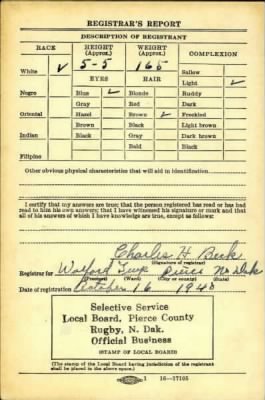 REGISTRAR'S REPORT
DESCRIPTION OF REGISTRANT
RACE HEIGHT (Approx.) WEIGHT (Approx.) COMPLEXION
White ✓ 5-5 165 Sallow
EYES HAIR Light ✓
Negro Blue ✓ Blonde Ruddy
Gray Red Dark
Oriental Hazel Brown ✓ Freckled
Brown Black Light brown
Indian Black Gray Dark brown
Bald Black
Filipino
Other obvious physical characteristics that will aid in identification
I certify that my answers are true; that the person registered has read or has had
read to him his own answers; that I have witnessed his signature or mark and that
all of his answers of which I have knowledge are true, except as follows:
Charles H.
(Signature of registrar)
Registrar for Twp Pierce No Dak
(Precinct) (Ward) (City or county) (State)
Date of registration October 16 1940
Selective Service
Local Board, Pierce County
Rugby, N. Dak.
Official Business
(STAMP OF LOCAL BOARD)
(The stamp of the Local Board having jurisdiction of the registrant
shall be placed in the above space.)
1 16—17105